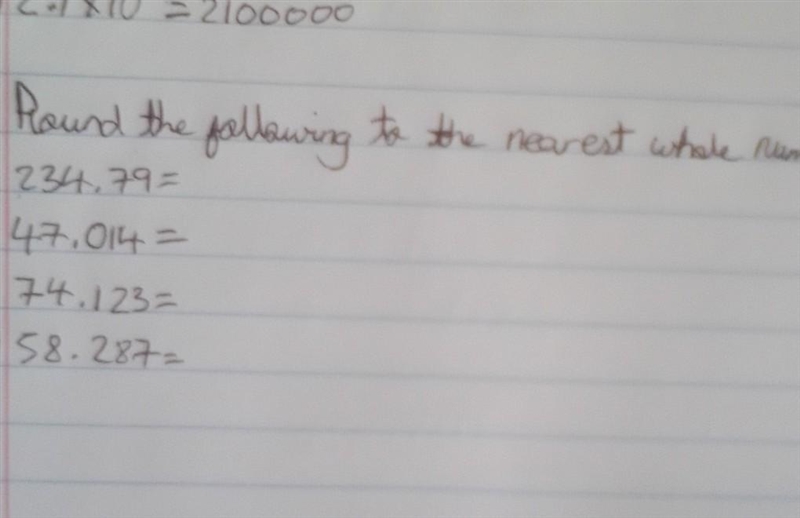 2.1 x 10 = 2100000
Round the following to the nearest whole
234.79=
47.014=
74.123=
58.287=